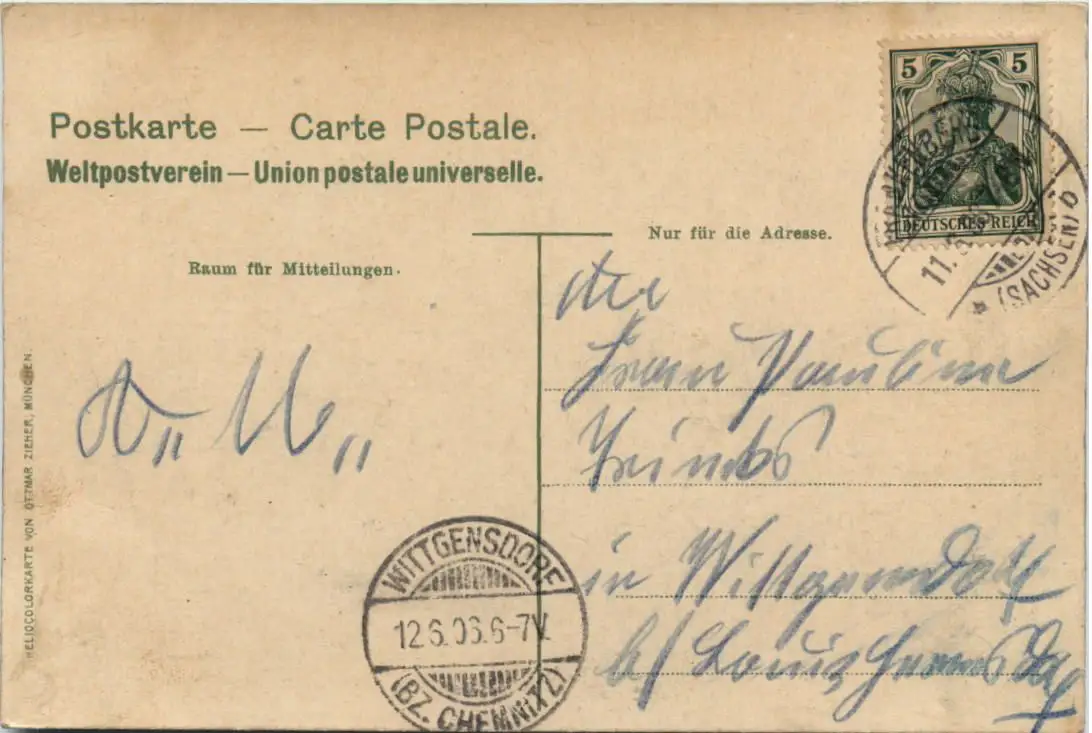 Postkarte — Carte Postale.
Weltpostverein — Union postale universelle.
Raum für Mitteilungen.
Nur für die Adresse.
5 5
DEUTSCHES REICH
11.
(SACHSEN) b
HELIOCOLORKARTE VON OTTMAR ZIEHER, MÜNCHEN.
Frau Pauline
in Wittgensdorf
b/
WITTGENSDORF
12.6.06.6-7V.
(BZ. CHEMNITZ)